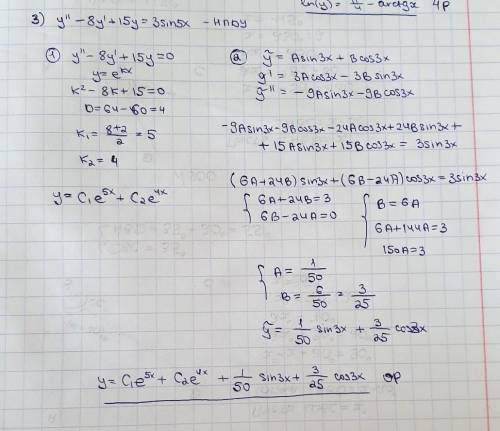 ln(y) = π/4 - arctgx ЧР
3) y'' - 8y' + 15y = 3sin5x - НЛДУ
① y'' - 8y' + 15y = 0
y = e^kx
k² - 8k + 15 = 0
D = 64 - 60 = 4
k₁ = (8+2)/2 = 5
k₂ = 4
y = C₁e^5x + C₂e^4x
② ỹ = Asin3x + Bcos3x
ỹ' = 3Acos3x - 3Bsin3x
ỹ'' = -9Asin3x - 9Bcos3x
-9Asin3x - 9Bcos3x - 24Acos3x + 24Bsin3x +
+ 15Asin3x + 15Bcos3x = 3sin3x
(6A+24B)sin3x + (6B-24A)cos3x = 3sin3x
{ 6A+24B=3 { B=6A
6B-24A=0 6A+144A=3
150A=3
{ A = 1/50
B = 6/50 = 3/25
ỹ = 1/50 sin3x + 3/25 cos3x
y = C₁e^5x + C₂e^4x + 1/50 sin3x + 3/25 cos3x ОР